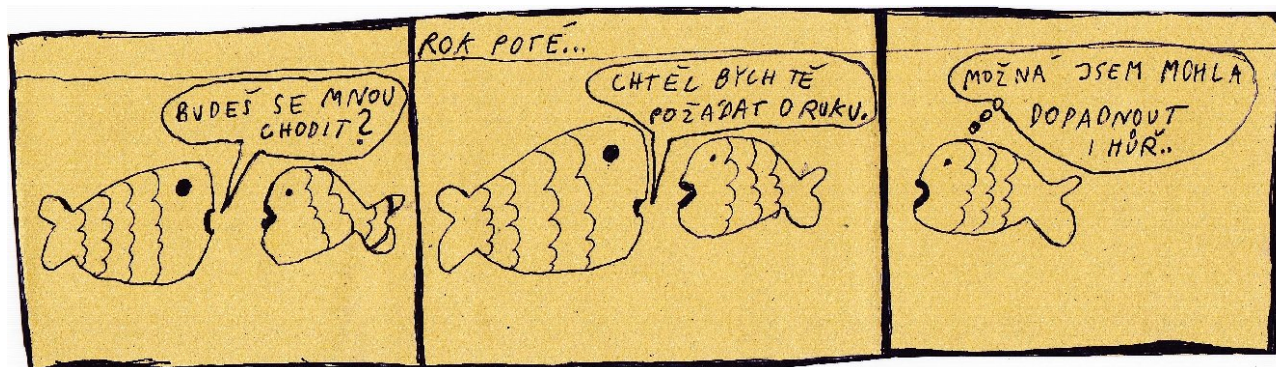 BUDEŠ SE MNOU
CHODIT?
ROK POTÉ...
CHTĚL BYCH TĚ
POŽÁDAT O RUKU.
MOŽNÁ JSEM MOHLA
DOPADNOUT
I HŮŘ..